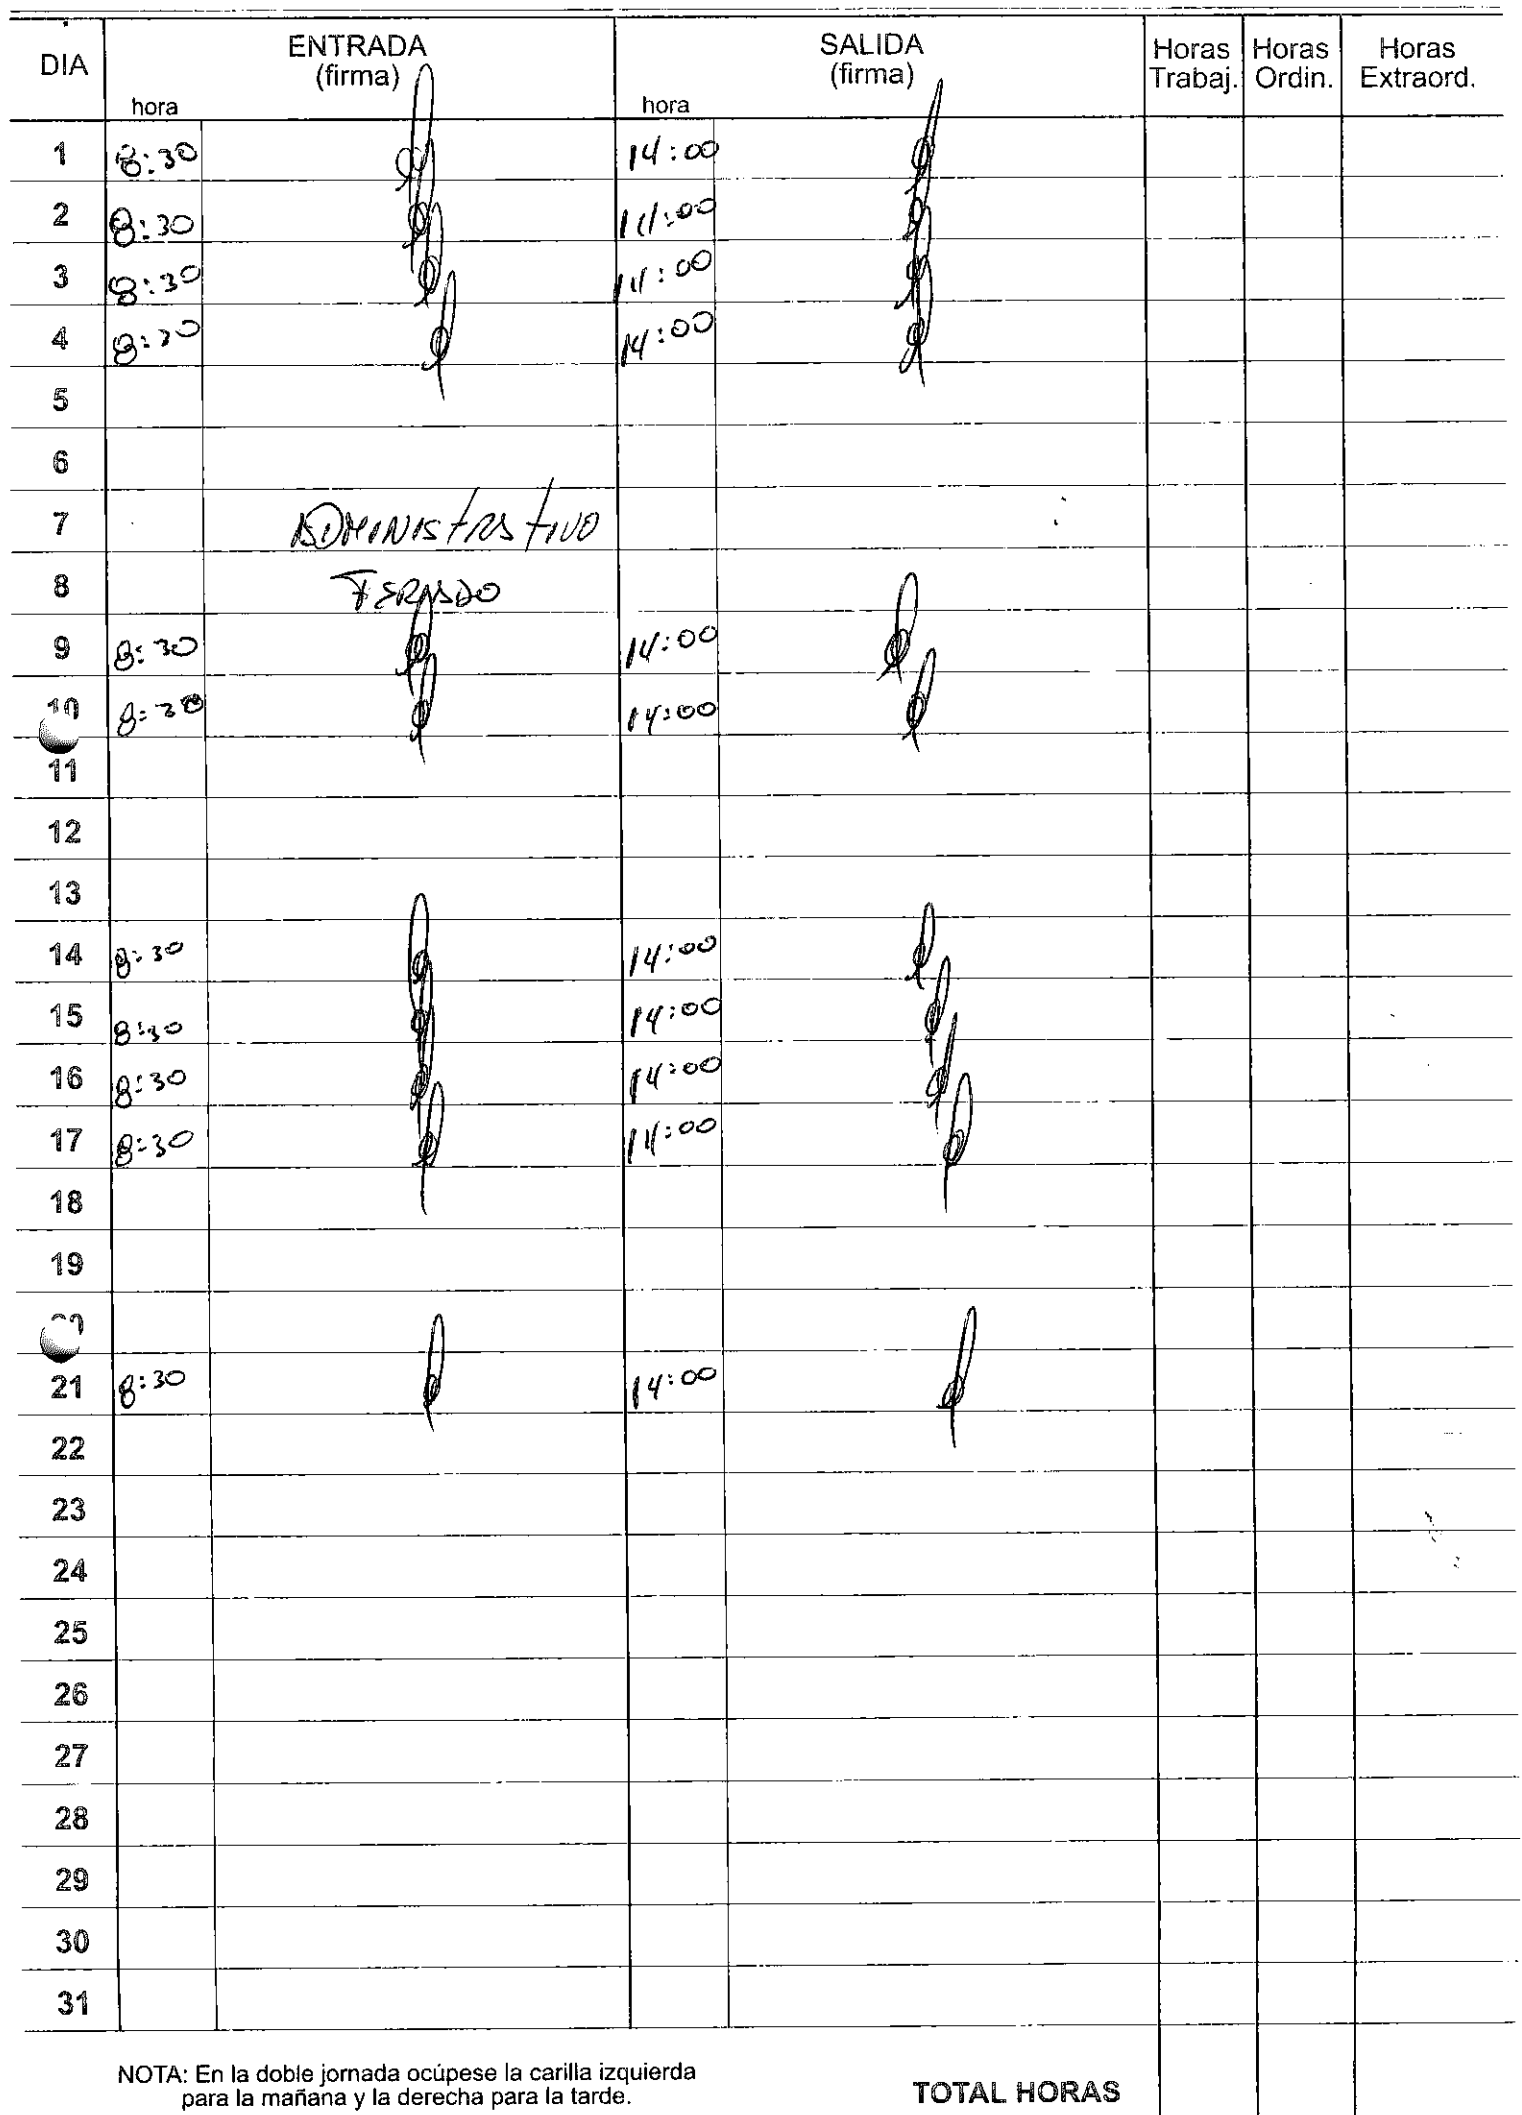 DIA ENTRADA (firma) hora SALIDA (firma) hora Horas Trabaj. Horas Ordin. Horas Extraord.
1 8:30 14:00
2 8:30 14:00
3 8:30 14:00
4 8:30 14:00
5
6
7 ADMINISTRATIVO
8 FERIADO
9 8:30 14:00
10 8:30 14:00
11
12
13
14 8:30 14:00
15 8:30 14:00
16 8:30 14:00
17 8:30 14:00
18
19
21 8:30 14:00
22
23
24
25
26
27
28
29
30
31
NOTA: En la doble jornada ocúpese la carilla izquierda
para la mañana y la derecha para la tarde.
TOTAL HORAS